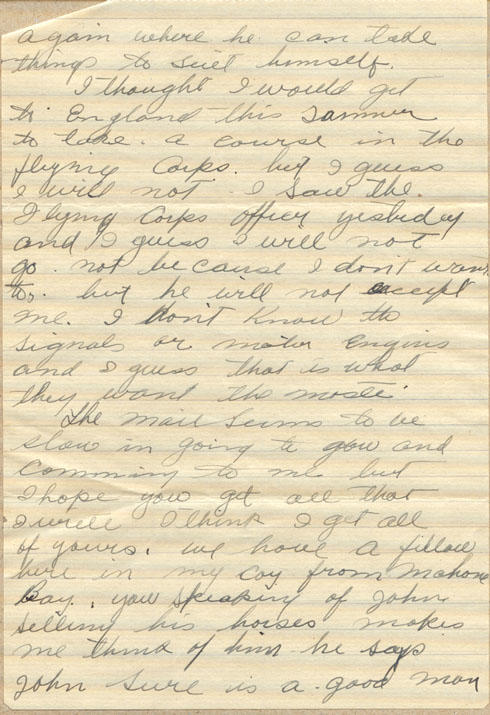 again where he can take
things to suit himself.
I thought I would get
to England this Sammer
to take. a course in the
flying Corps. but I guess
I will not. I saw the.
Flying Corps officer yesterday
and I guess I will not
go. not because I don't want
to. but he will not accept
me. I don't Know the
signals or motor Engins
and I guess that is what
they want the moste.
The mail seems to be
slow in going to you and
comming to me but
I hope you get all that
I write I think I get all
of yours. we have a fellow
here in my coy from Mahone
Bay. you speaking of John
selling his horses makes
me think of him he says
John Sure is a good man